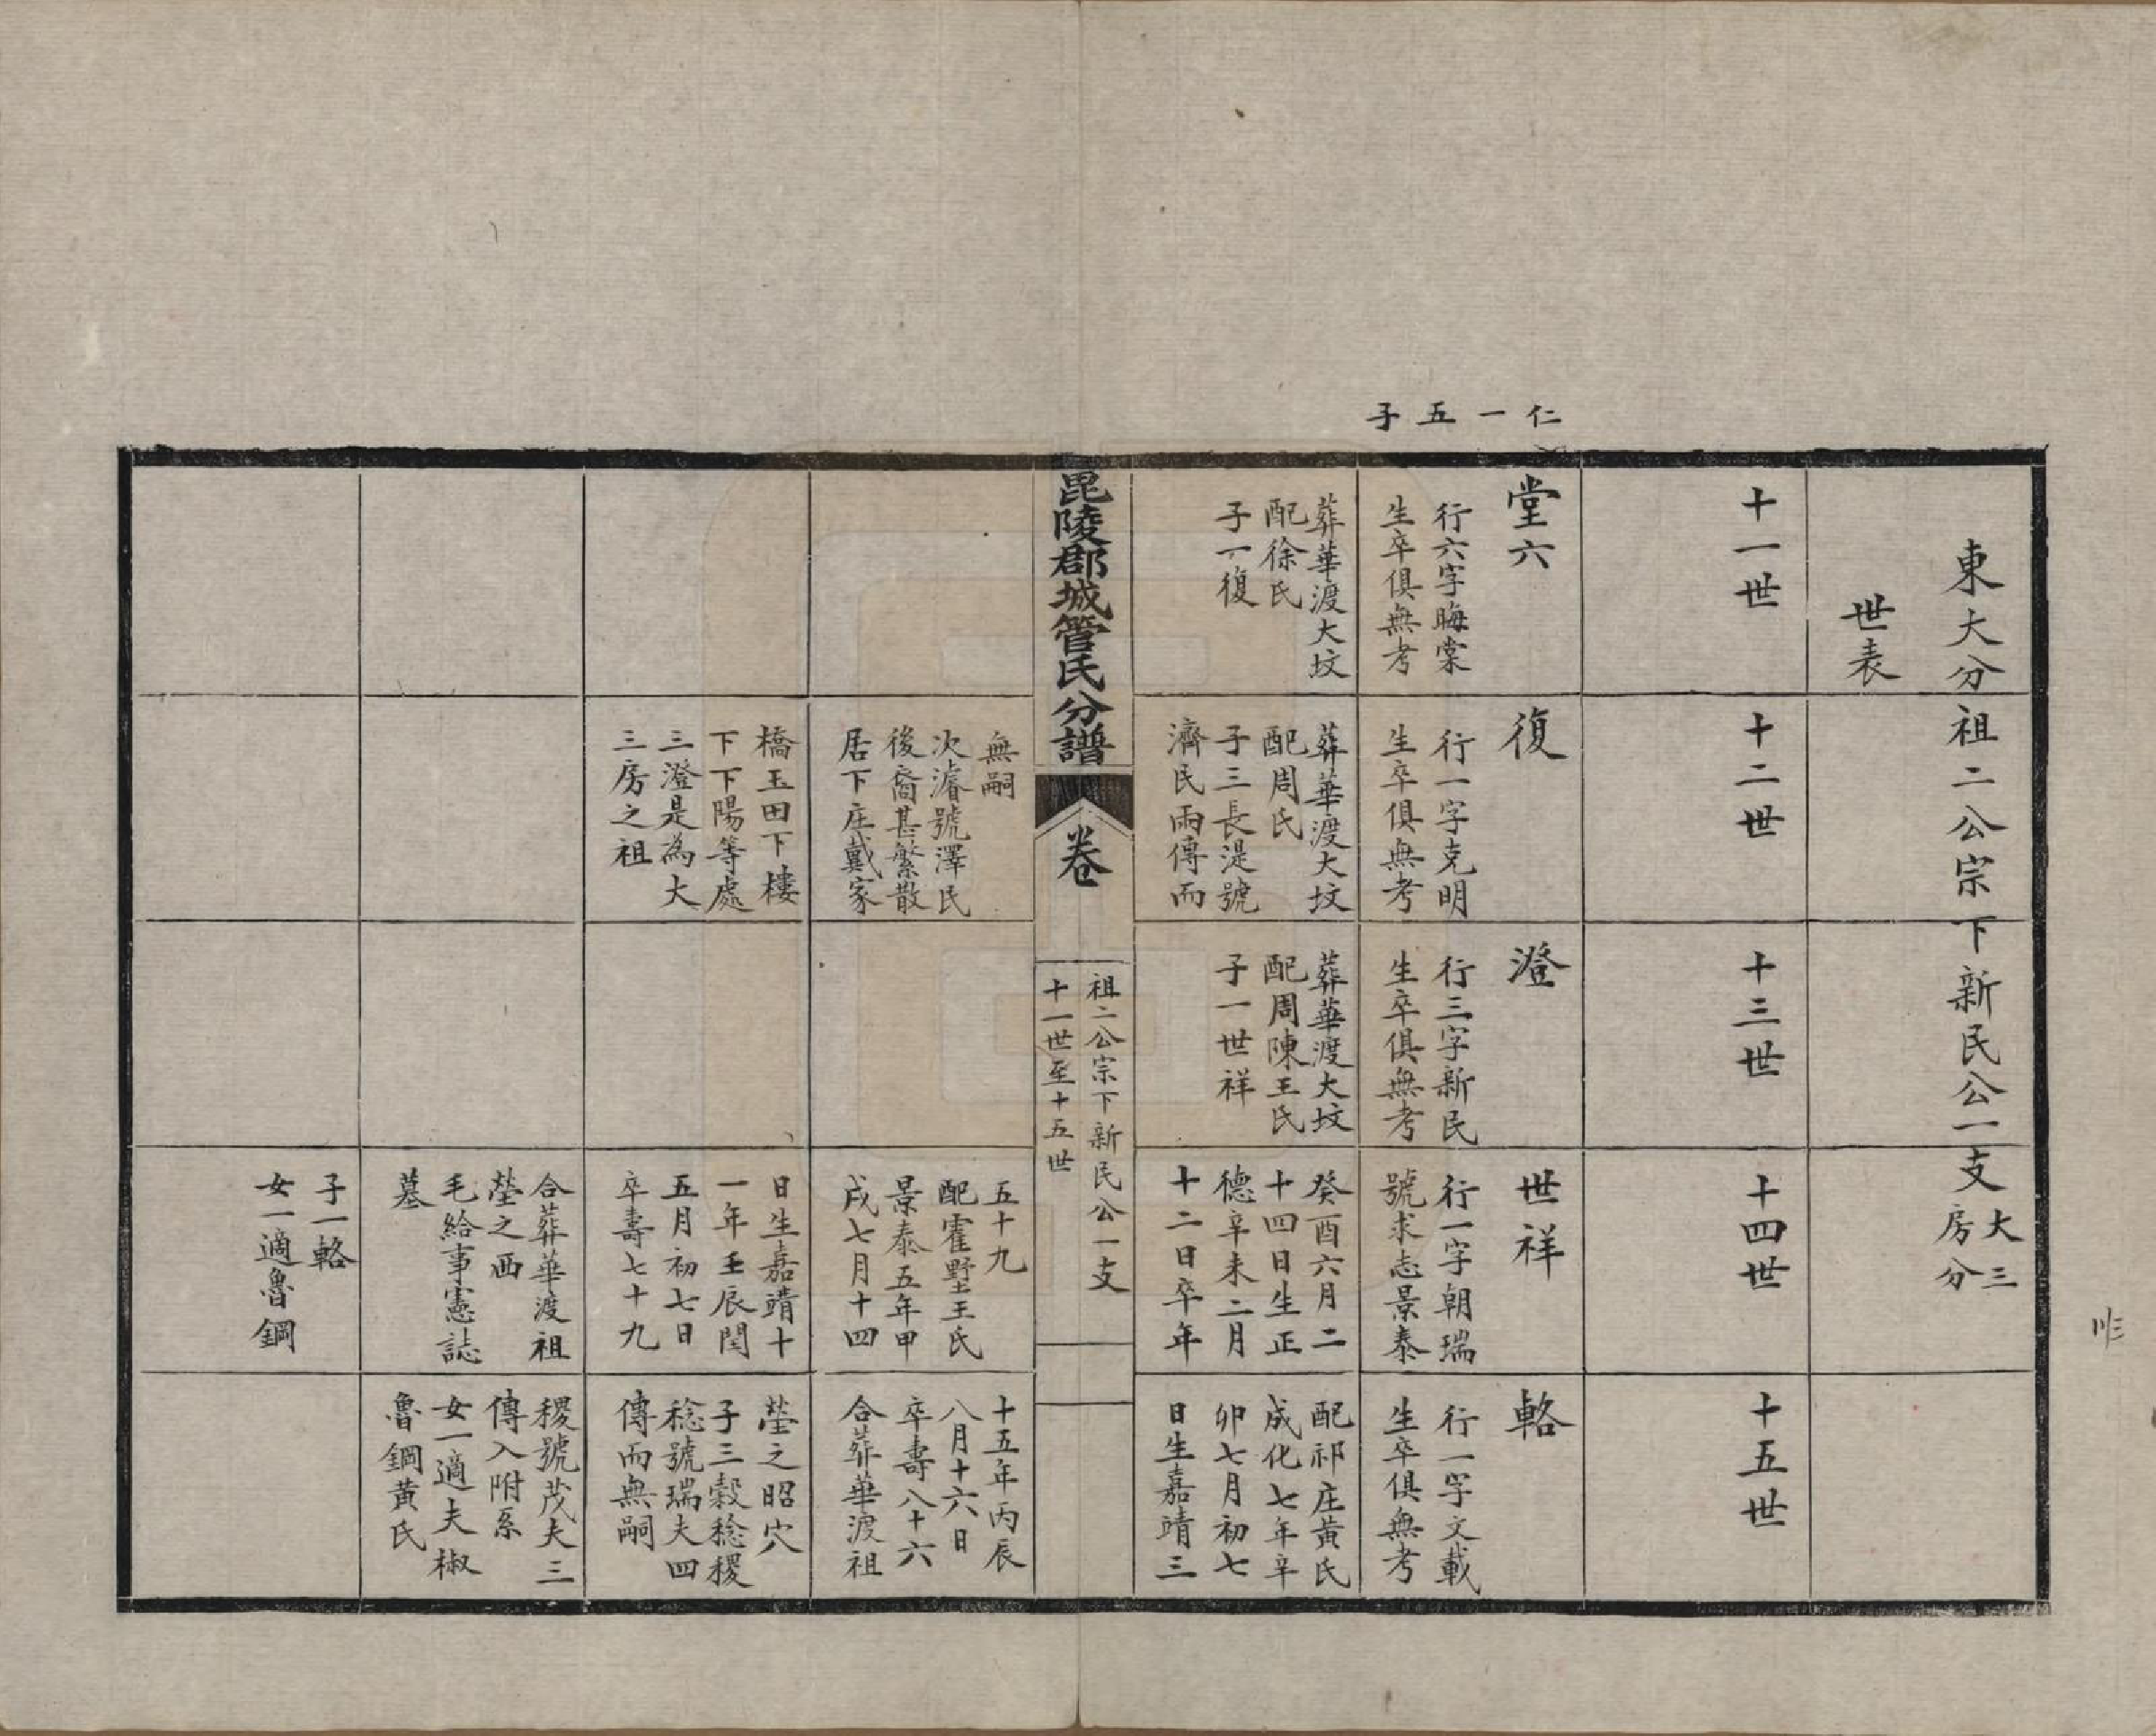 仁一五子
東大分祖二公宗下新民公一支大三
房分
世表
十一世
十二世
十三世
十四世
十五世
堂六
行六字晦棠
生卒俱無考
葬華渡大坟
配徐氏
子一復
復
行一字克明
生卒俱無考
葬華渡大坟
配周氏
子三長湜號
濟民兩傳而
無嗣
次濬號澤民
後裔甚繁散
居下庄戴家
橋玉田下樓
下下陽等處
三澄是為大
三房之祖
澄
行三字新民
生卒俱無考
葬華渡大坟
配周陳王氏
子一世祥
世祥
行一字朝瑞
號求志景泰
癸酉六月二
十四日生正
德辛未二月
十二日卒年
五十九
配霍墅王氏
景泰五年甲
戌七月十四
日生嘉靖十
一年壬辰閏
五月初七日
卒壽七十九
合葬華渡祖
塋之西
毛給事憲誌
墓
子一輅
女一適魯鋼
輅
行一字文載
生卒俱無考
配祁庄黃氏
成化七年辛
卯七月初七
日生嘉靖三
十五年丙辰
八月十六日
卒壽八十六
合葬華渡祖
塋之昭穴
子三穀稔稷
稔號瑞夫四
傳而無嗣
稷號茂夫三
傳入附系
女一適夫椒
魯鋼黃氏
毘陵郡城管氏分譜
卷
祖二公宗下新民公一支
十一世至十五世